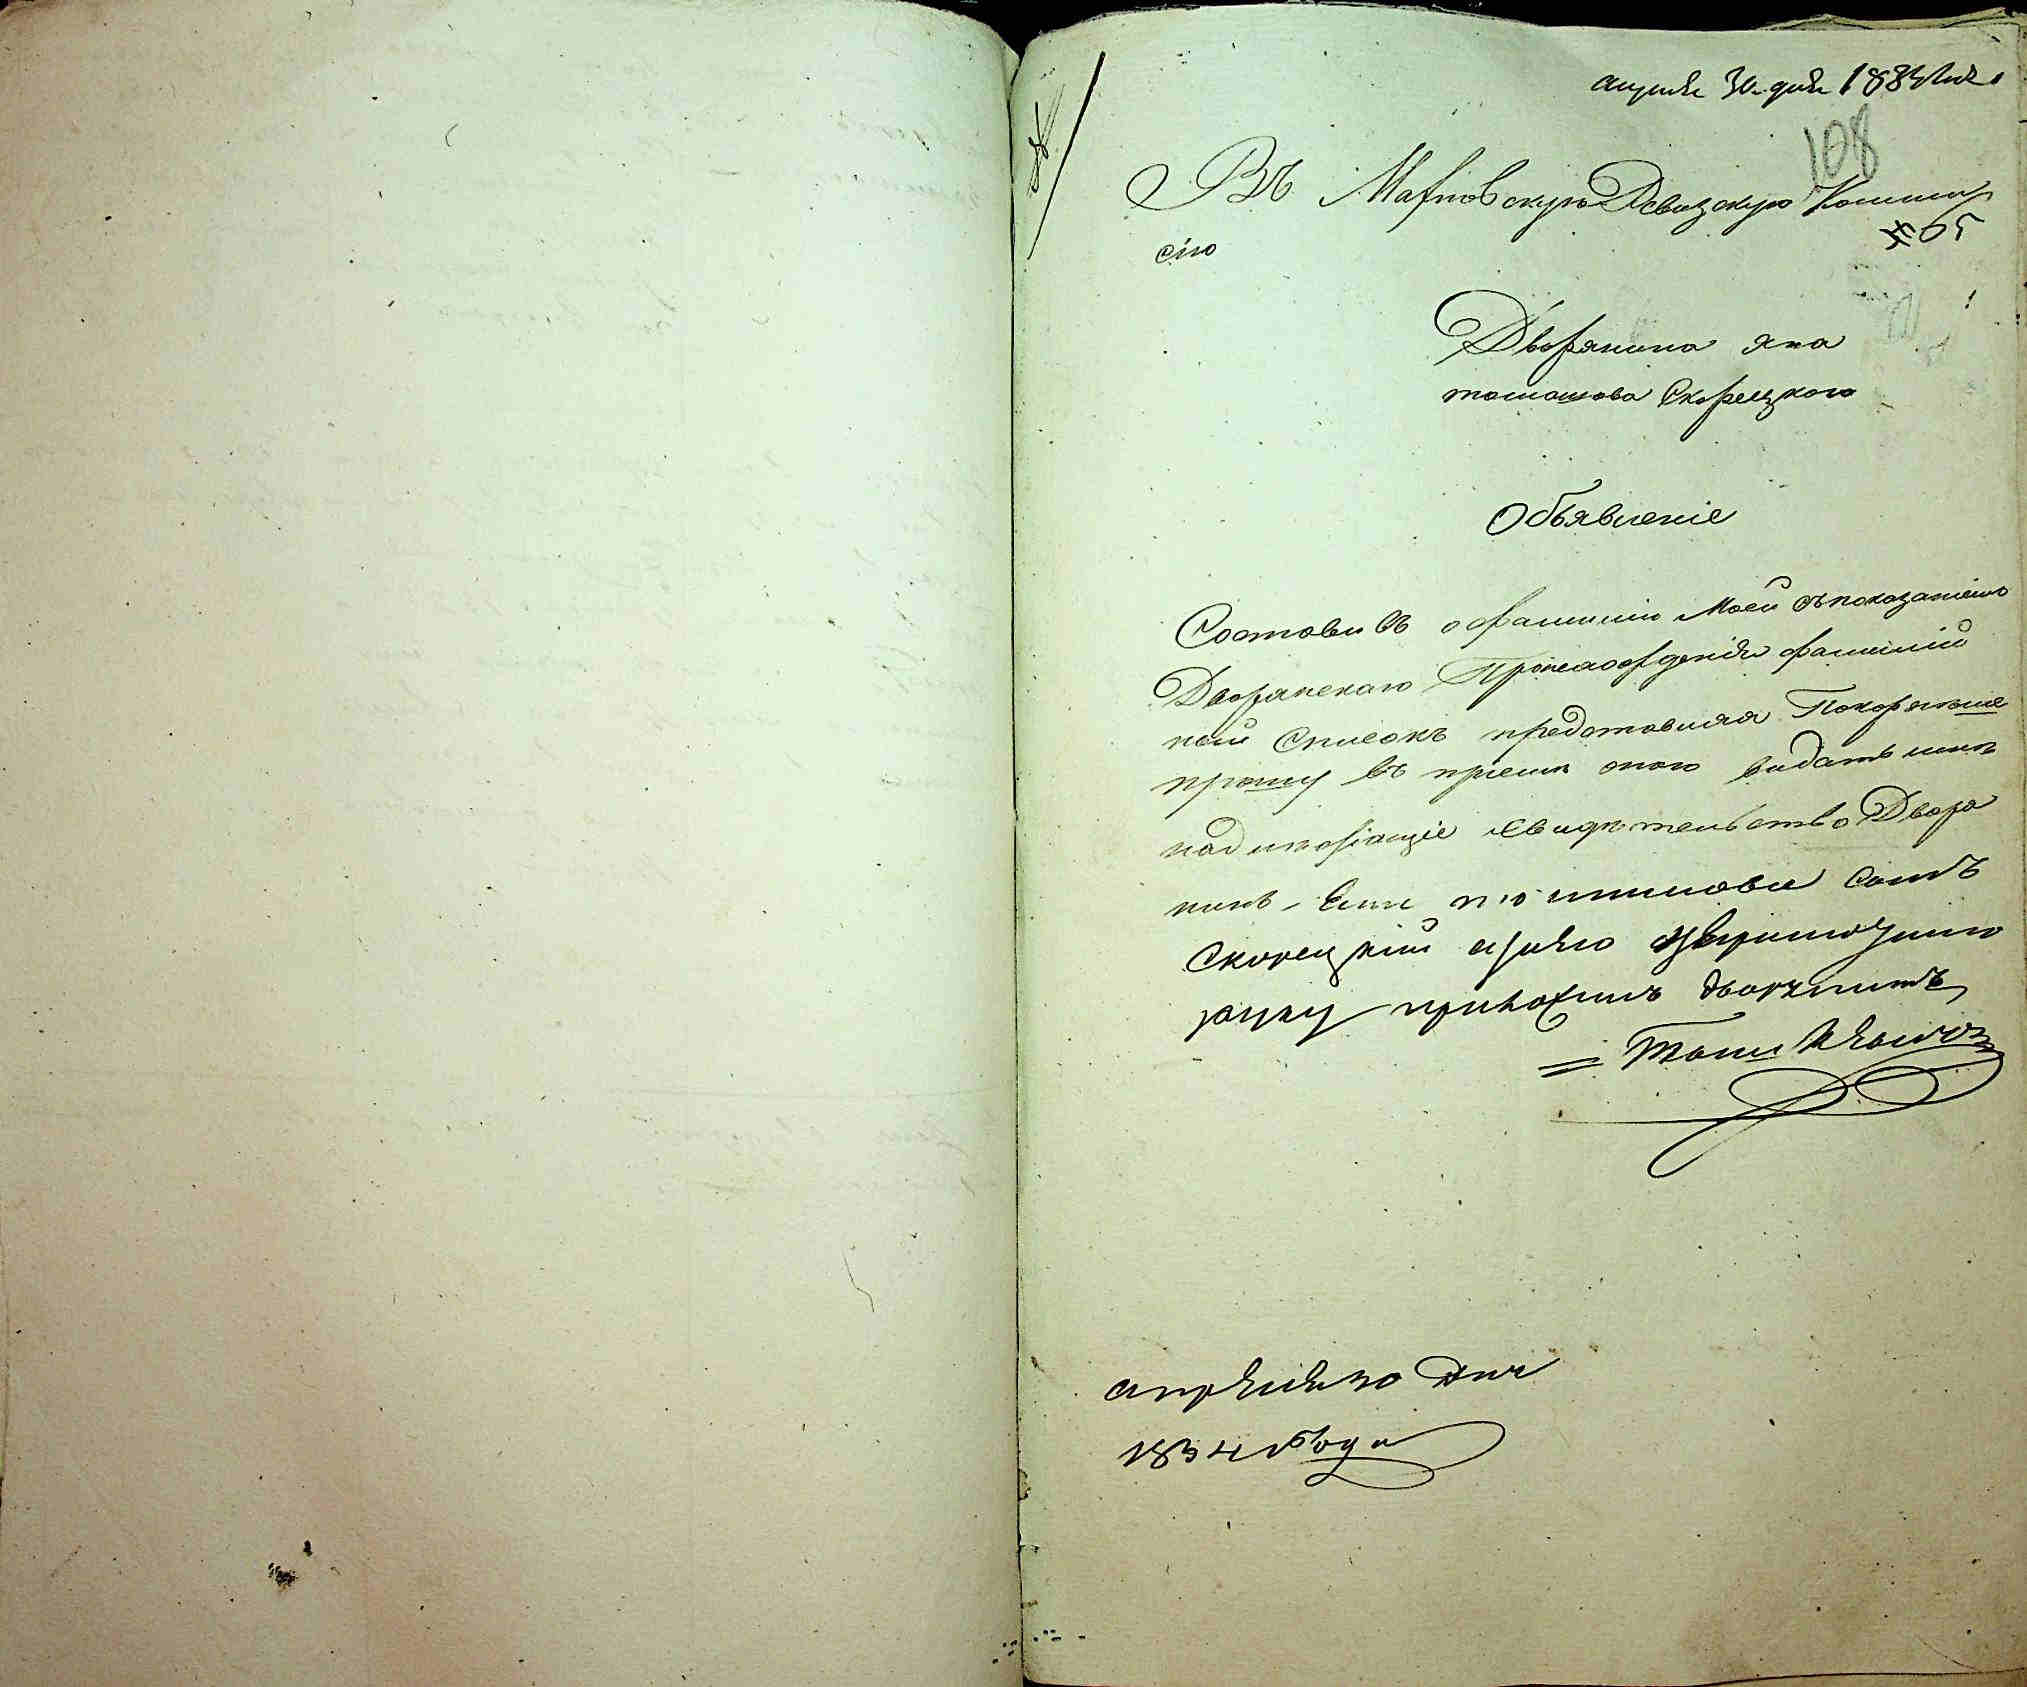 апреля 30 дня 1834 года
108
Въ Марковскую Ревизскую Коммис
сію
Дворянина яна
томашова Скорецкого
Объявленіе
Составивъ о фамиліи Моей съ показаніемъ
Дворянскаго Происхожденія фамилій
ный Списокъ представляя Покорнѣйше
прошу въ пріемѣ оного видать мнѣ
надлежащіе Свидѣтельство Дворя
нинъ
Скорецкій
руку приложилъ дворянинъ
апреля 30 дня
1834 Года